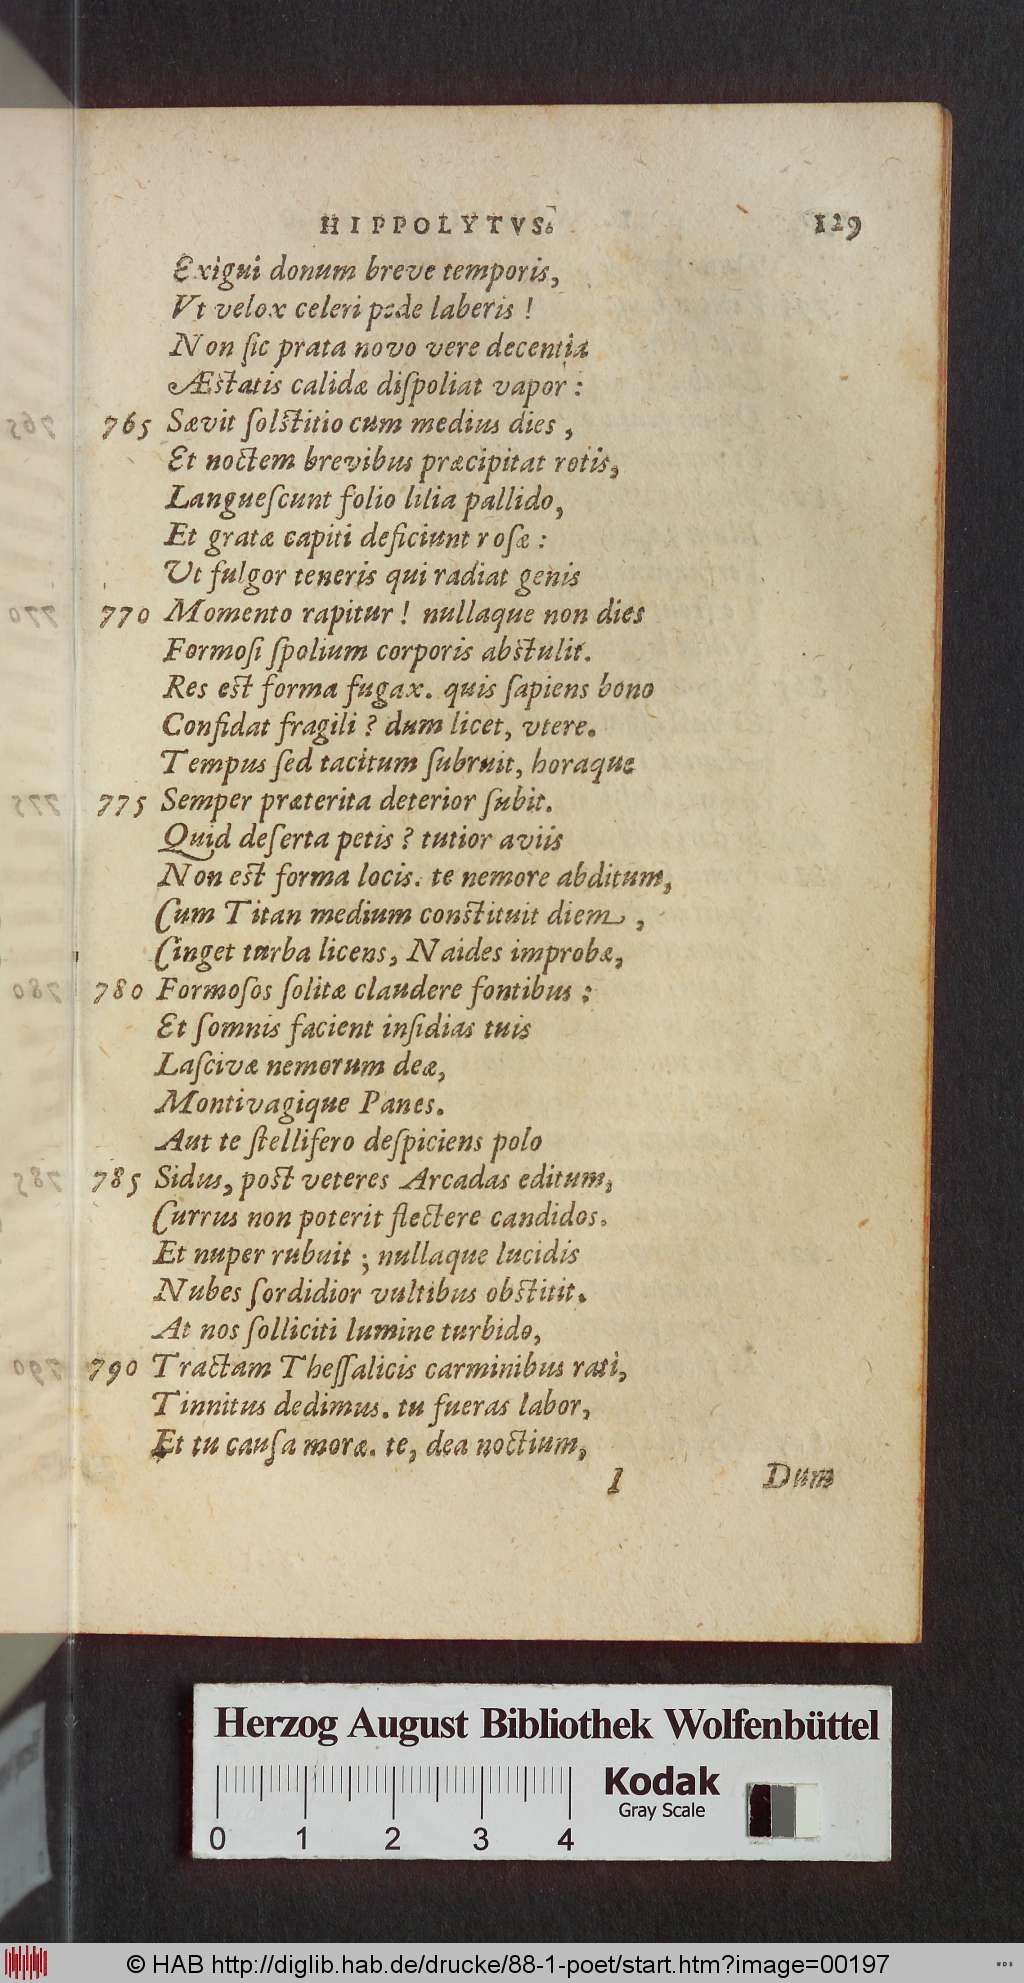 HIPPOLYTVS. 129
Exigui donum breve temporis,
Vt velox celeri pede laberis !
Non ſic prata novo vere decentia
Æſtatis calidæ diſpoliat vapor :
765 Sævit ſolſtitio cum medius dies ,
Et noctem brevibus præcipitat rotis,
Langueſcunt folio lilia pallido,
Et gratæ capiti deficiunt roſæ :
Ut fulgor teneris qui radiat genis
770 Momento rapitur ! nullaque non dies
Formoſi ſpolium corporis abſtulit.
Res eſt forma fugax. quis ſapiens bono
Confidat fragili ? dum licet, vtere.
Tempus ſed tacitum ſubruit, horaque
775 Semper præterita deterior ſubit.
Quid deſerta petis ? tutior aviis
Non eſt forma locis. te nemore abditum,
Cum Titan medium conſtituit diem ,
Cinget turba licens, Naides improbæ,
780 Formoſos ſolitæ claudere fontibus :
Et ſomnis facient inſidias tuis
Laſcivæ nemorum deæ,
Montivagique Panes.
Aut te ſtellifero deſpiciens polo
785 Sidus, poſt veteres Arcadas editum,
Currus non poterit flectere candidos.
Et nuper rubuit ; nullaque lucidis
Nubes ſordidior vultibus obſtitit.
At nos ſolliciti lumine turbido,
790 Tractam Theſſalicis carminibus rati,
Tinnitus dedimus. tu fueras labor,
Et tu cauſa moræ. te, dea noctium,
I Dum
Herzog August Bibliothek Wolfenbüttel
Kodak
Gray Scale
0 1 2 3 4
© HAB http://diglib.hab.de/drucke/88-1-poet/start.htm?image=00197